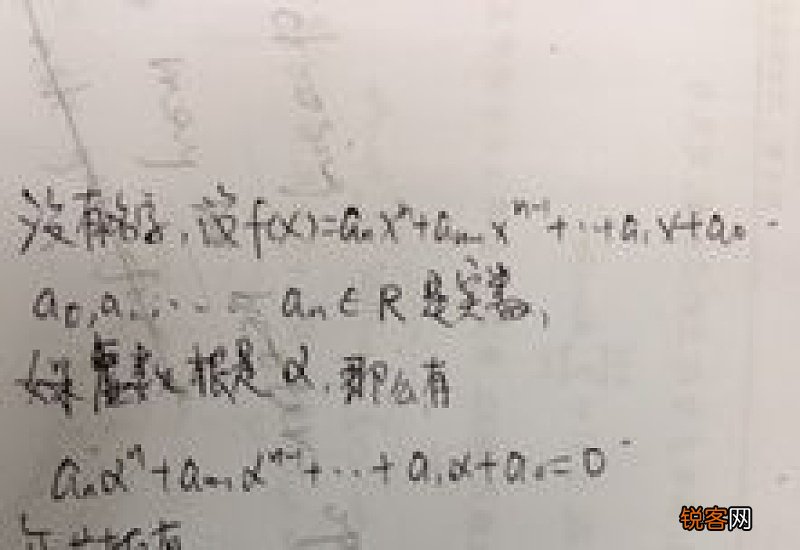 没有符号,设f(x)=aₙxⁿ+aₙ₋₁xⁿ⁻¹+…+a₁x+a₀
a₀,a₁,… aₙ∈R是实数,
如果虚数根是α,那么有
aₙαⁿ+aₙ₋₁αⁿ⁻¹+…+a₁α+a₀=0
锐客网